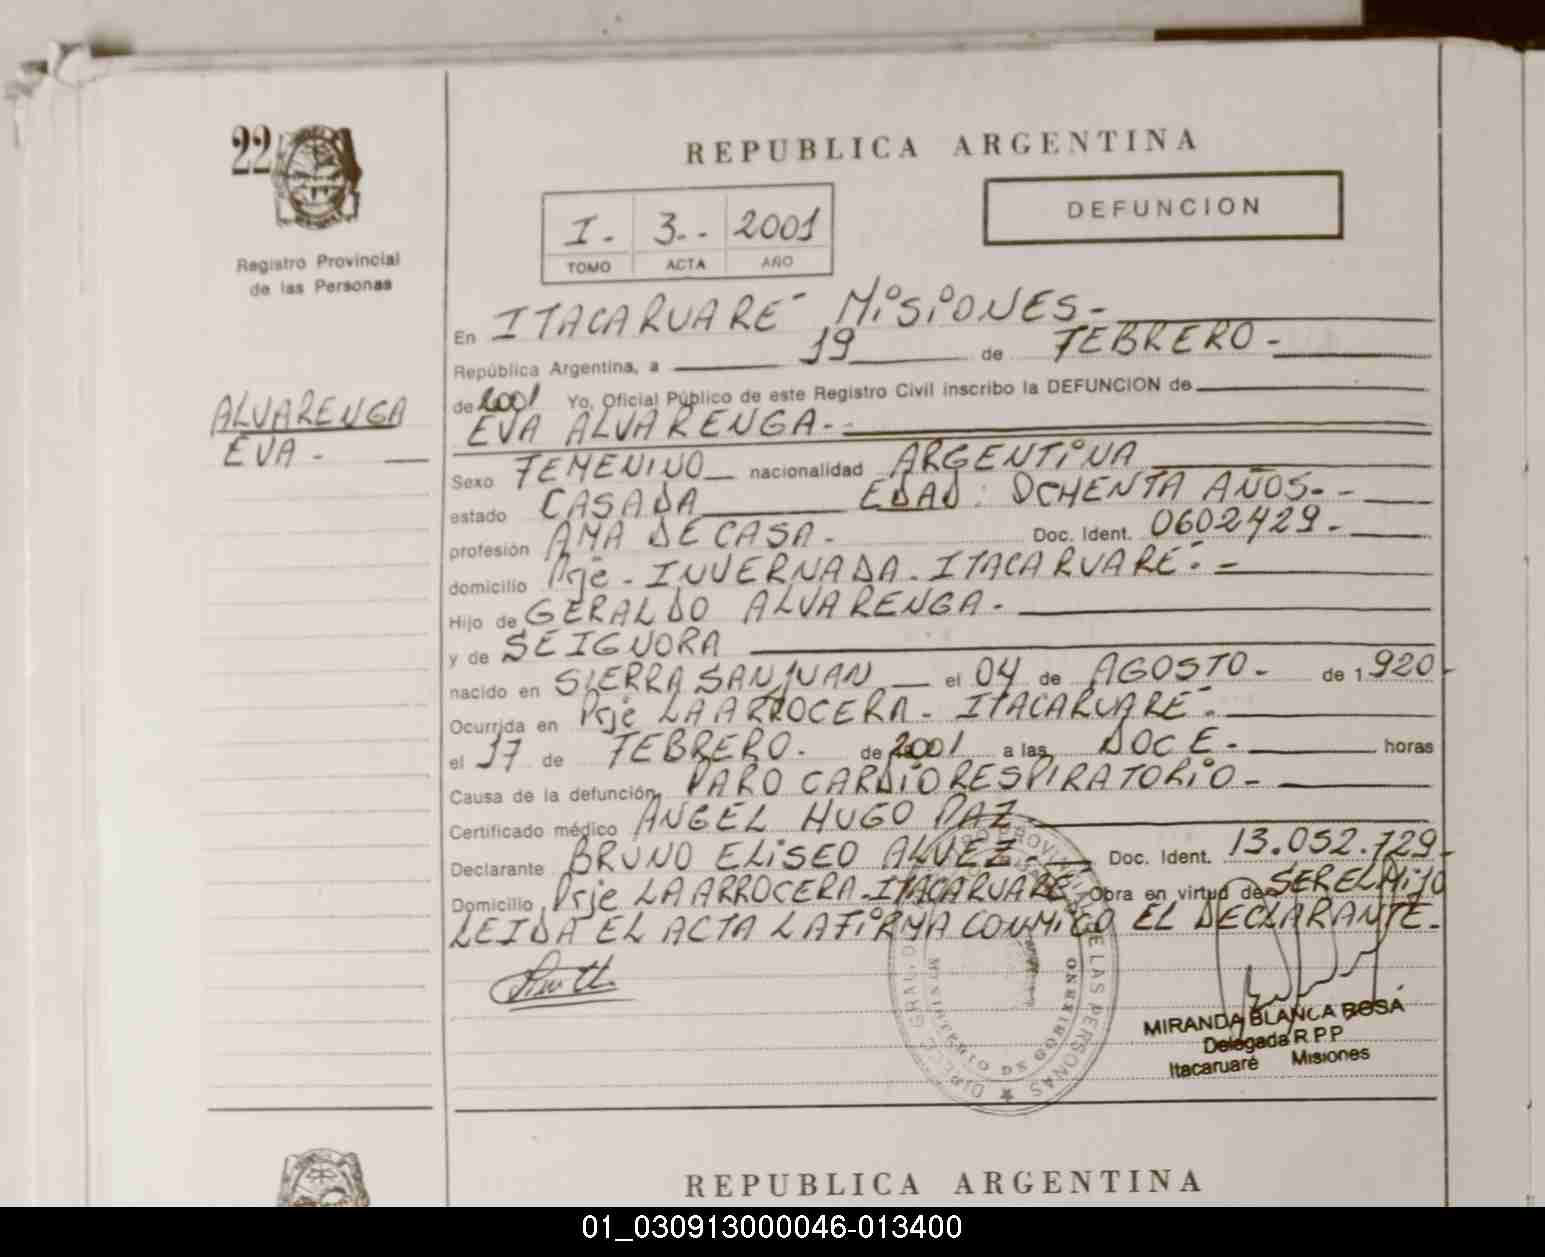 22
REPUBLICA ARGENTINA
Registro Provincial
de las Personas
I.- 3.- 2001
TOMO ACTA AÑO
DEFUNCION
En ITACARUARE MISIONES.-
República Argentina, a 19 de FEBRERO.-
de 2001 Yo, Oficial Público de este Registro Civil inscribo la DEFUNCION de
ALVARENGA
EVA.-
EVA ALVARENGA.-
Sexo FEMENINO nacionalidad ARGENTINA
estado CASADA EDAD: OCHENTA AÑOS.-
profesión AMA DE CASA.- Doc. Ident. 0602429.-
domicilio Prje.- INVERNADA.- ITACARUARE.-
Hijo de GERALDO ALVARENGA.-
y de SE IGNORA
nacido en SIERRA SAN JUAN el 04 de AGOSTO.- de 1.920.-
Ocurrida en Prje LA ARROCERA.- ITACARUARE.-
el 17 de FEBRERO.- de 2001 a las DOCE.- horas
Causa de la defunción, PARO CARDIO RESPIRATORIO.-
Certificado médico ANGEL HUGO PAZ
Declarante BRUNO ELISEO ALVEZ.- Doc. Ident. 13.052.729.-
Domicilio Prje LA ARROCERA.- ITACARUARE Obra en virtud de SER EL HIJO
LEIDA EL ACTA LA FIRMA CONMIGO EL DECLARANTE.-
MINISTERIO DE GOBIERNO
MIRANDA BLANCA ROSA
Delegada R.P.P
Itacaruaré Misiones
REPUBLICA ARGENTINA
01_030913000046-013400